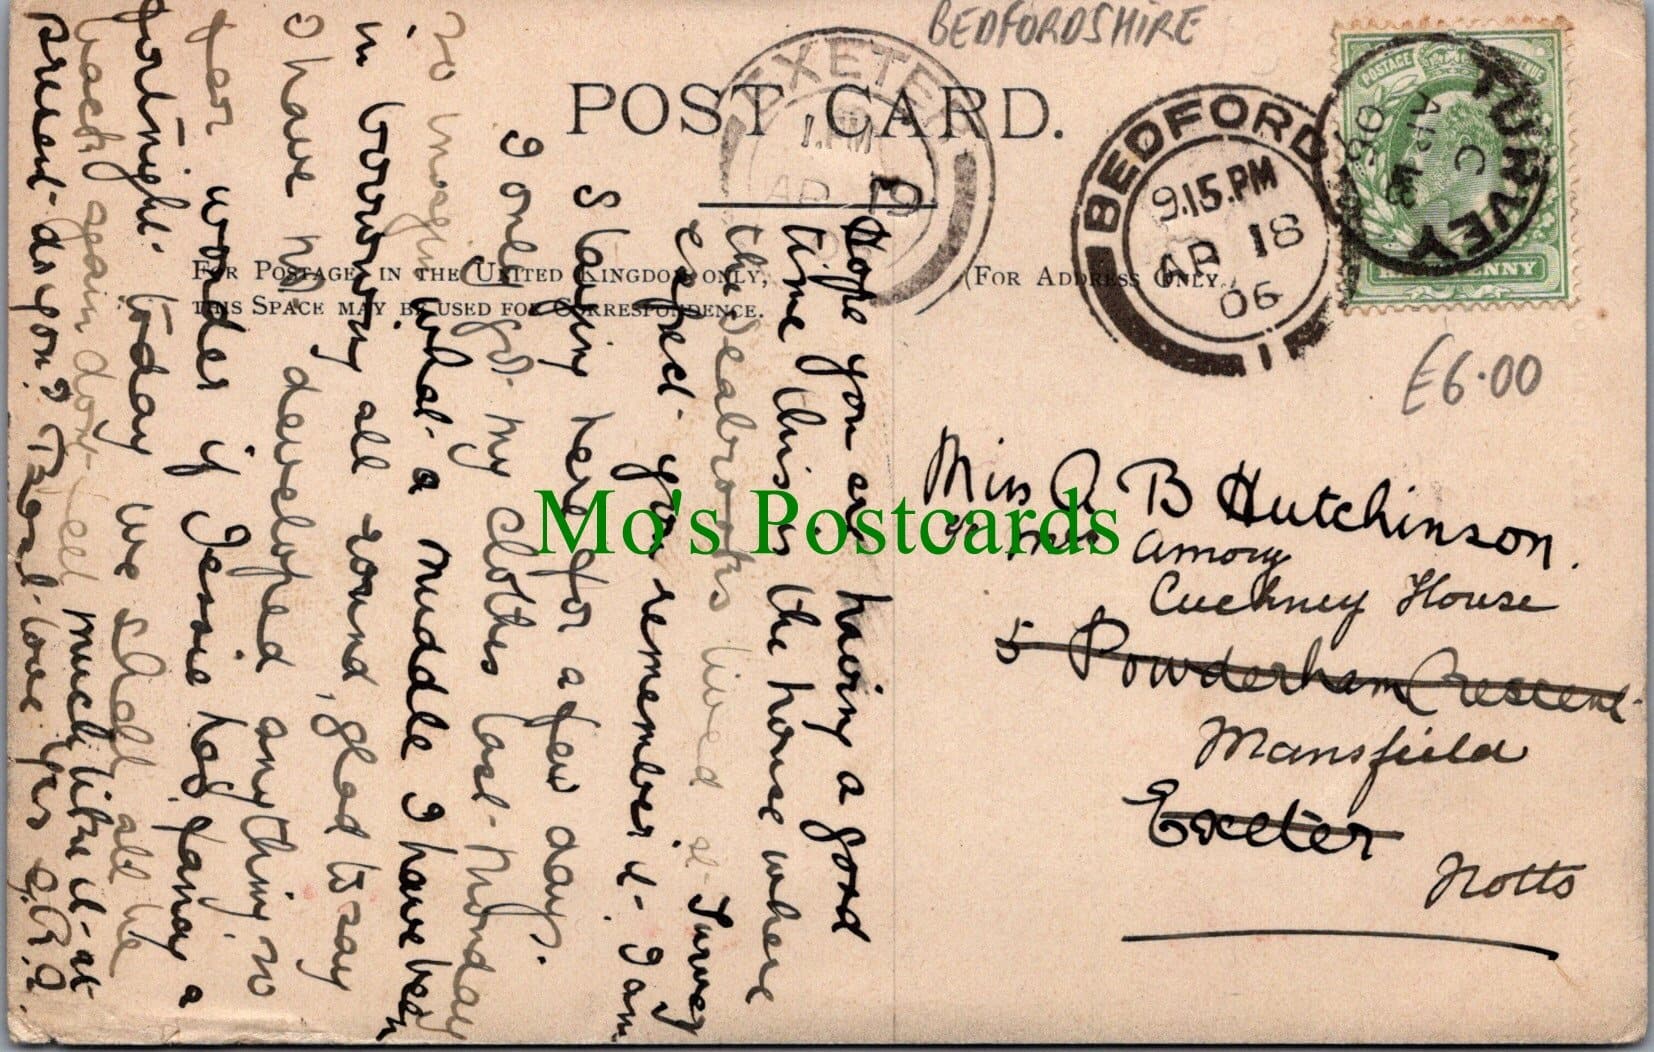 BEDFORDSHIRE
POST CARD.
EXETER
1.PM
AP 19
BEDFORD
9.15.PM
AP 18
06
TURVEY
C
AP 18
06
POSTAGE REVENUE
HALFPENNY
FOR POSTAGE IN THE UNITED KINGDOM ONLY,
THIS SPACE MAY BE USED FOR CORRESPONDENCE.
(FOR ADDRESS ONLY.)
£6.00
Miss A B Hutchinson.
c/o Mrs Amory
Cuckney House
5 Powderham Crescent
Mansfield
Exeter
Notts
Mo's Postcards
Hope you are having a good
time this is the house where
the Seabrooks lived at Turvey
expect you remember it - I am
staying here for a few days.
I only got my clothes last Monday
so imagine what a muddle I have been
in borrowing all round, glad to say
I have not developed anything so
far wonder if Jessie has, fancy a
fortnight today we shall all be
back again don't feel much like it at
present - do you? Best love yrs